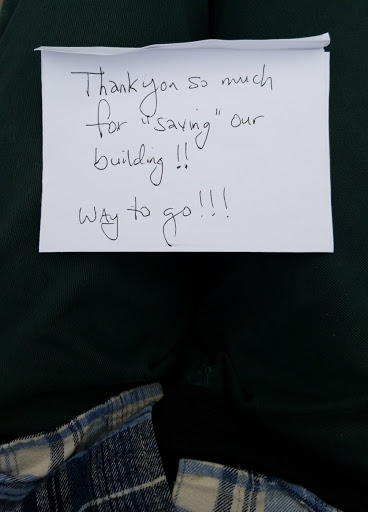 Thank you so much
for "saving" our
building!!
WAy to go!!!